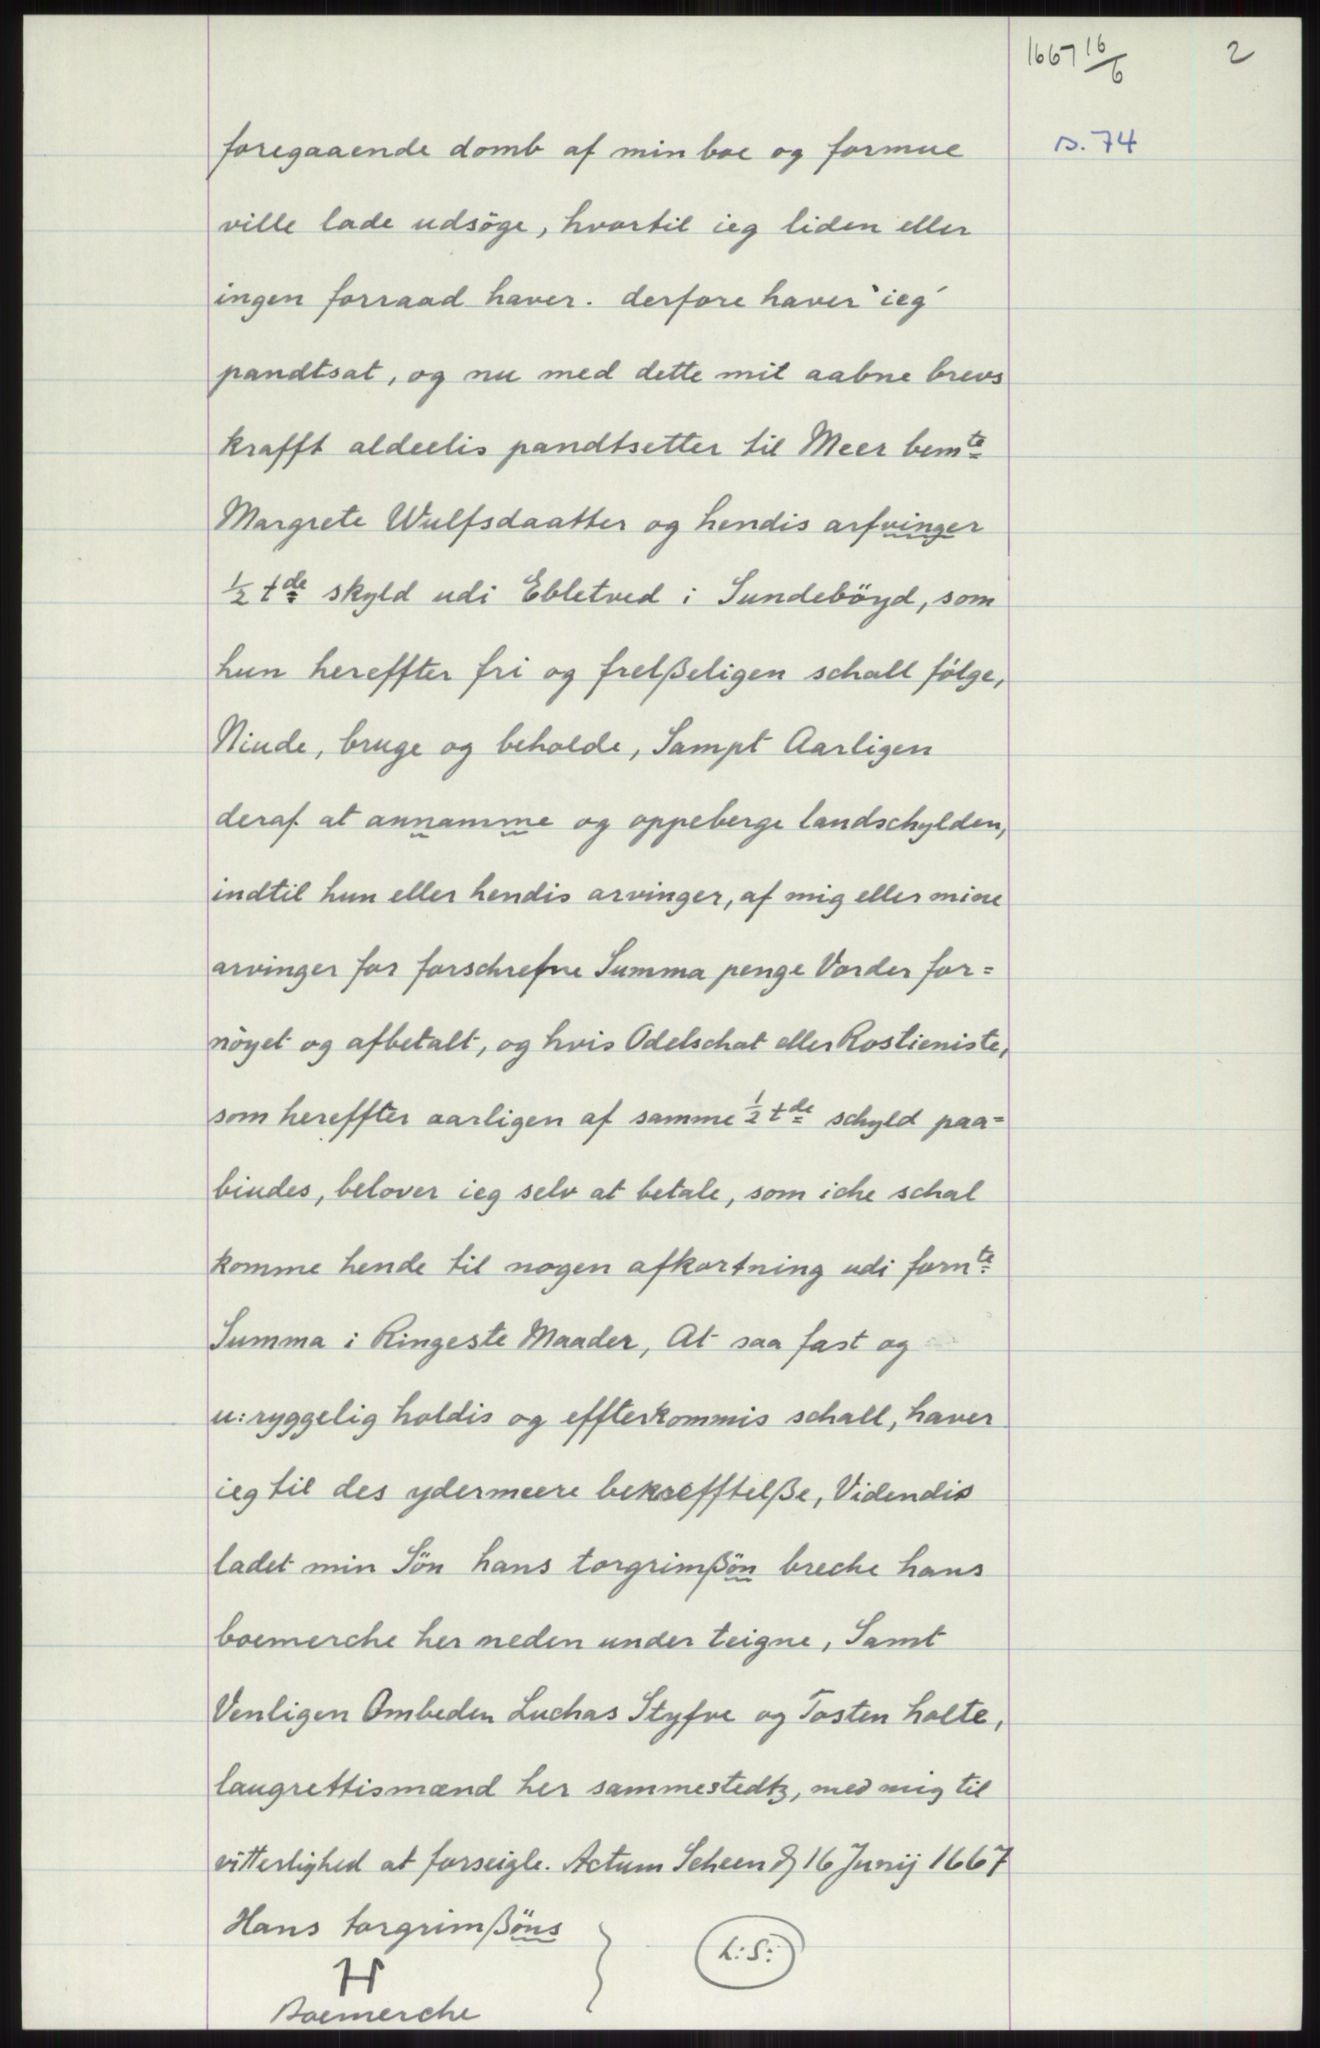 1667 16/6
2
s. 74
foregaaende domb af min boe og formue
ville lade udsöge, hvortil ieg liden eller
ingen forraad haver. derfore haver ieg
pandtsat, og nu med dette mit aabne brevs
krafft aldeelis pandtsetter til Meer bemte
Margrete Wulfsdaatter og hendis arfvinger
1/2 tde skyld udi Ebletved i Sundeböyd, som
hun hereffter fri og frelßeligen schall følge,
Niude, bruge og beholde, Sampt Aarligen
deraf at annamme og oppeberge landschylden,
indtil hun eller hendis arvinger, af mig eller mine
arvinger for forschrefne Summa penge Vorder for=
nöyet og afbetalt, og hvis Odelschat eller Rostieniste,
som hereffter aarligen af samme 1/2 tde schyld paa=
biudes, belover ieg selv at betale, som iche schal
komme hende til nogen afkortning udi fornte
Summa i Ringeste Maader, At saa fast og
u:ryggelig holdis og effterkommis schall, haver
ieg til des ydermeere bekrefftelße, Videndis
ladet min Sön hans torgrimßön breche hans
boemerche her neden under teigne, Samt
Venligen Ombeden Luchas Styfve og Tosten holte,
laugrettismænd her sammestedtz, med mig til
vitterlighed at forseigle. Actum Scheen d 16 Junij 1667
Hans torgrimßöns
H
Boemerche
L:S: